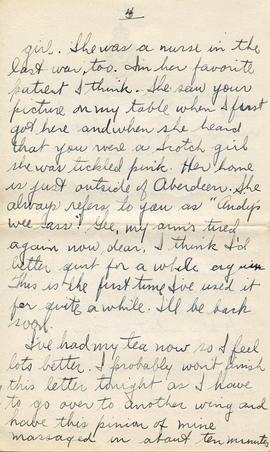 4
girl. She was a nurse in the
last war, too. I'm her favorite
patient I think. She saw your
picture on my table when I first
got here and when she heard
that you were a Scotch girl
she was tickled pink. Her home
is just outside of Aberdeen. She
always refers to you as "Andy's
wee lass". Gee, my arm's tired
again now dear, I think I'd
better quit for a while again
This is the first time I've used it
for quite a while. I'll be back
soon.
I've had my tea now so I feel
lots better. I probably won't finish
this letter tonight as I have
to go over to another wing and
have this pinion of mine
massaged in about ten minutes